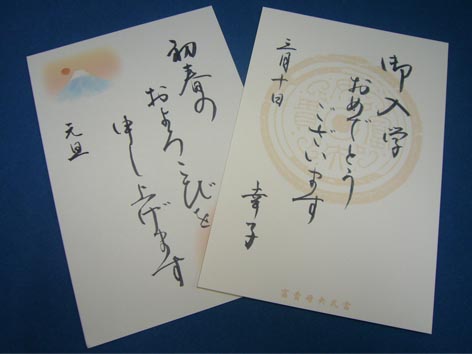 御入学
おめでとう
ございます
三月十日
幸子
初春の
およろこびを
申し上げます
元旦